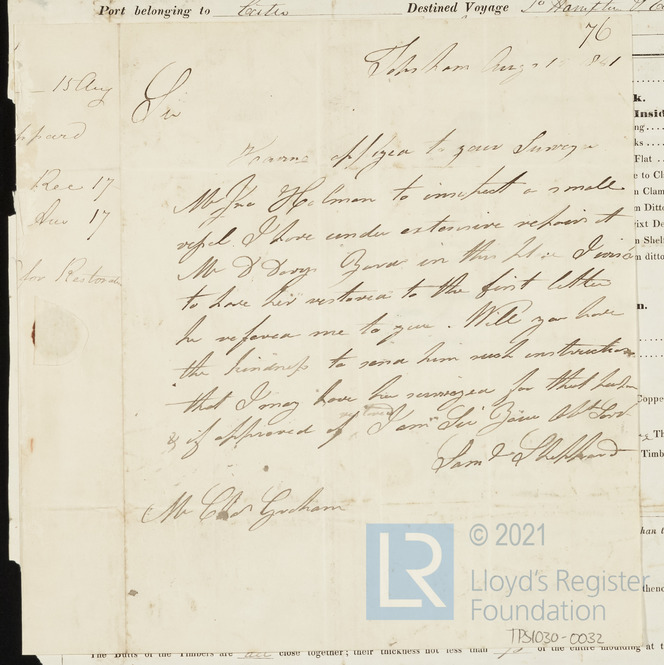 Port belonging to Exeter Destined Voyage So Hampton
76
Topsham Augs 1841
15 Aug
Sir
ppard
applyed to your Surveyor
Rec 17
Mr Jno Holman to inspect a small
Ans 17
vessel I have under extensive repairs at
Mr D Davys Yard in this I wish
to have her restored to the first letter
for Restorat
he refered me to you. Will you have
the kindness to send him such instructions
that I may have her surveyed for that
& if approved of I am Sir Your Obt Servt
Saml Sheppard
Mr Chas Graham
k.
Insid
ng
ks
Flat
e to Cl
n Clam
m Ditto
ixt De
n Shelf
m ditto
n.
Coppe
Th
Timb
han t
LR
© 2021
Lloyd's Register
Foundation
thenc
TP81030-0032
The Butts of the Timbers are close together; their thickness not less than of the entire moulding at t